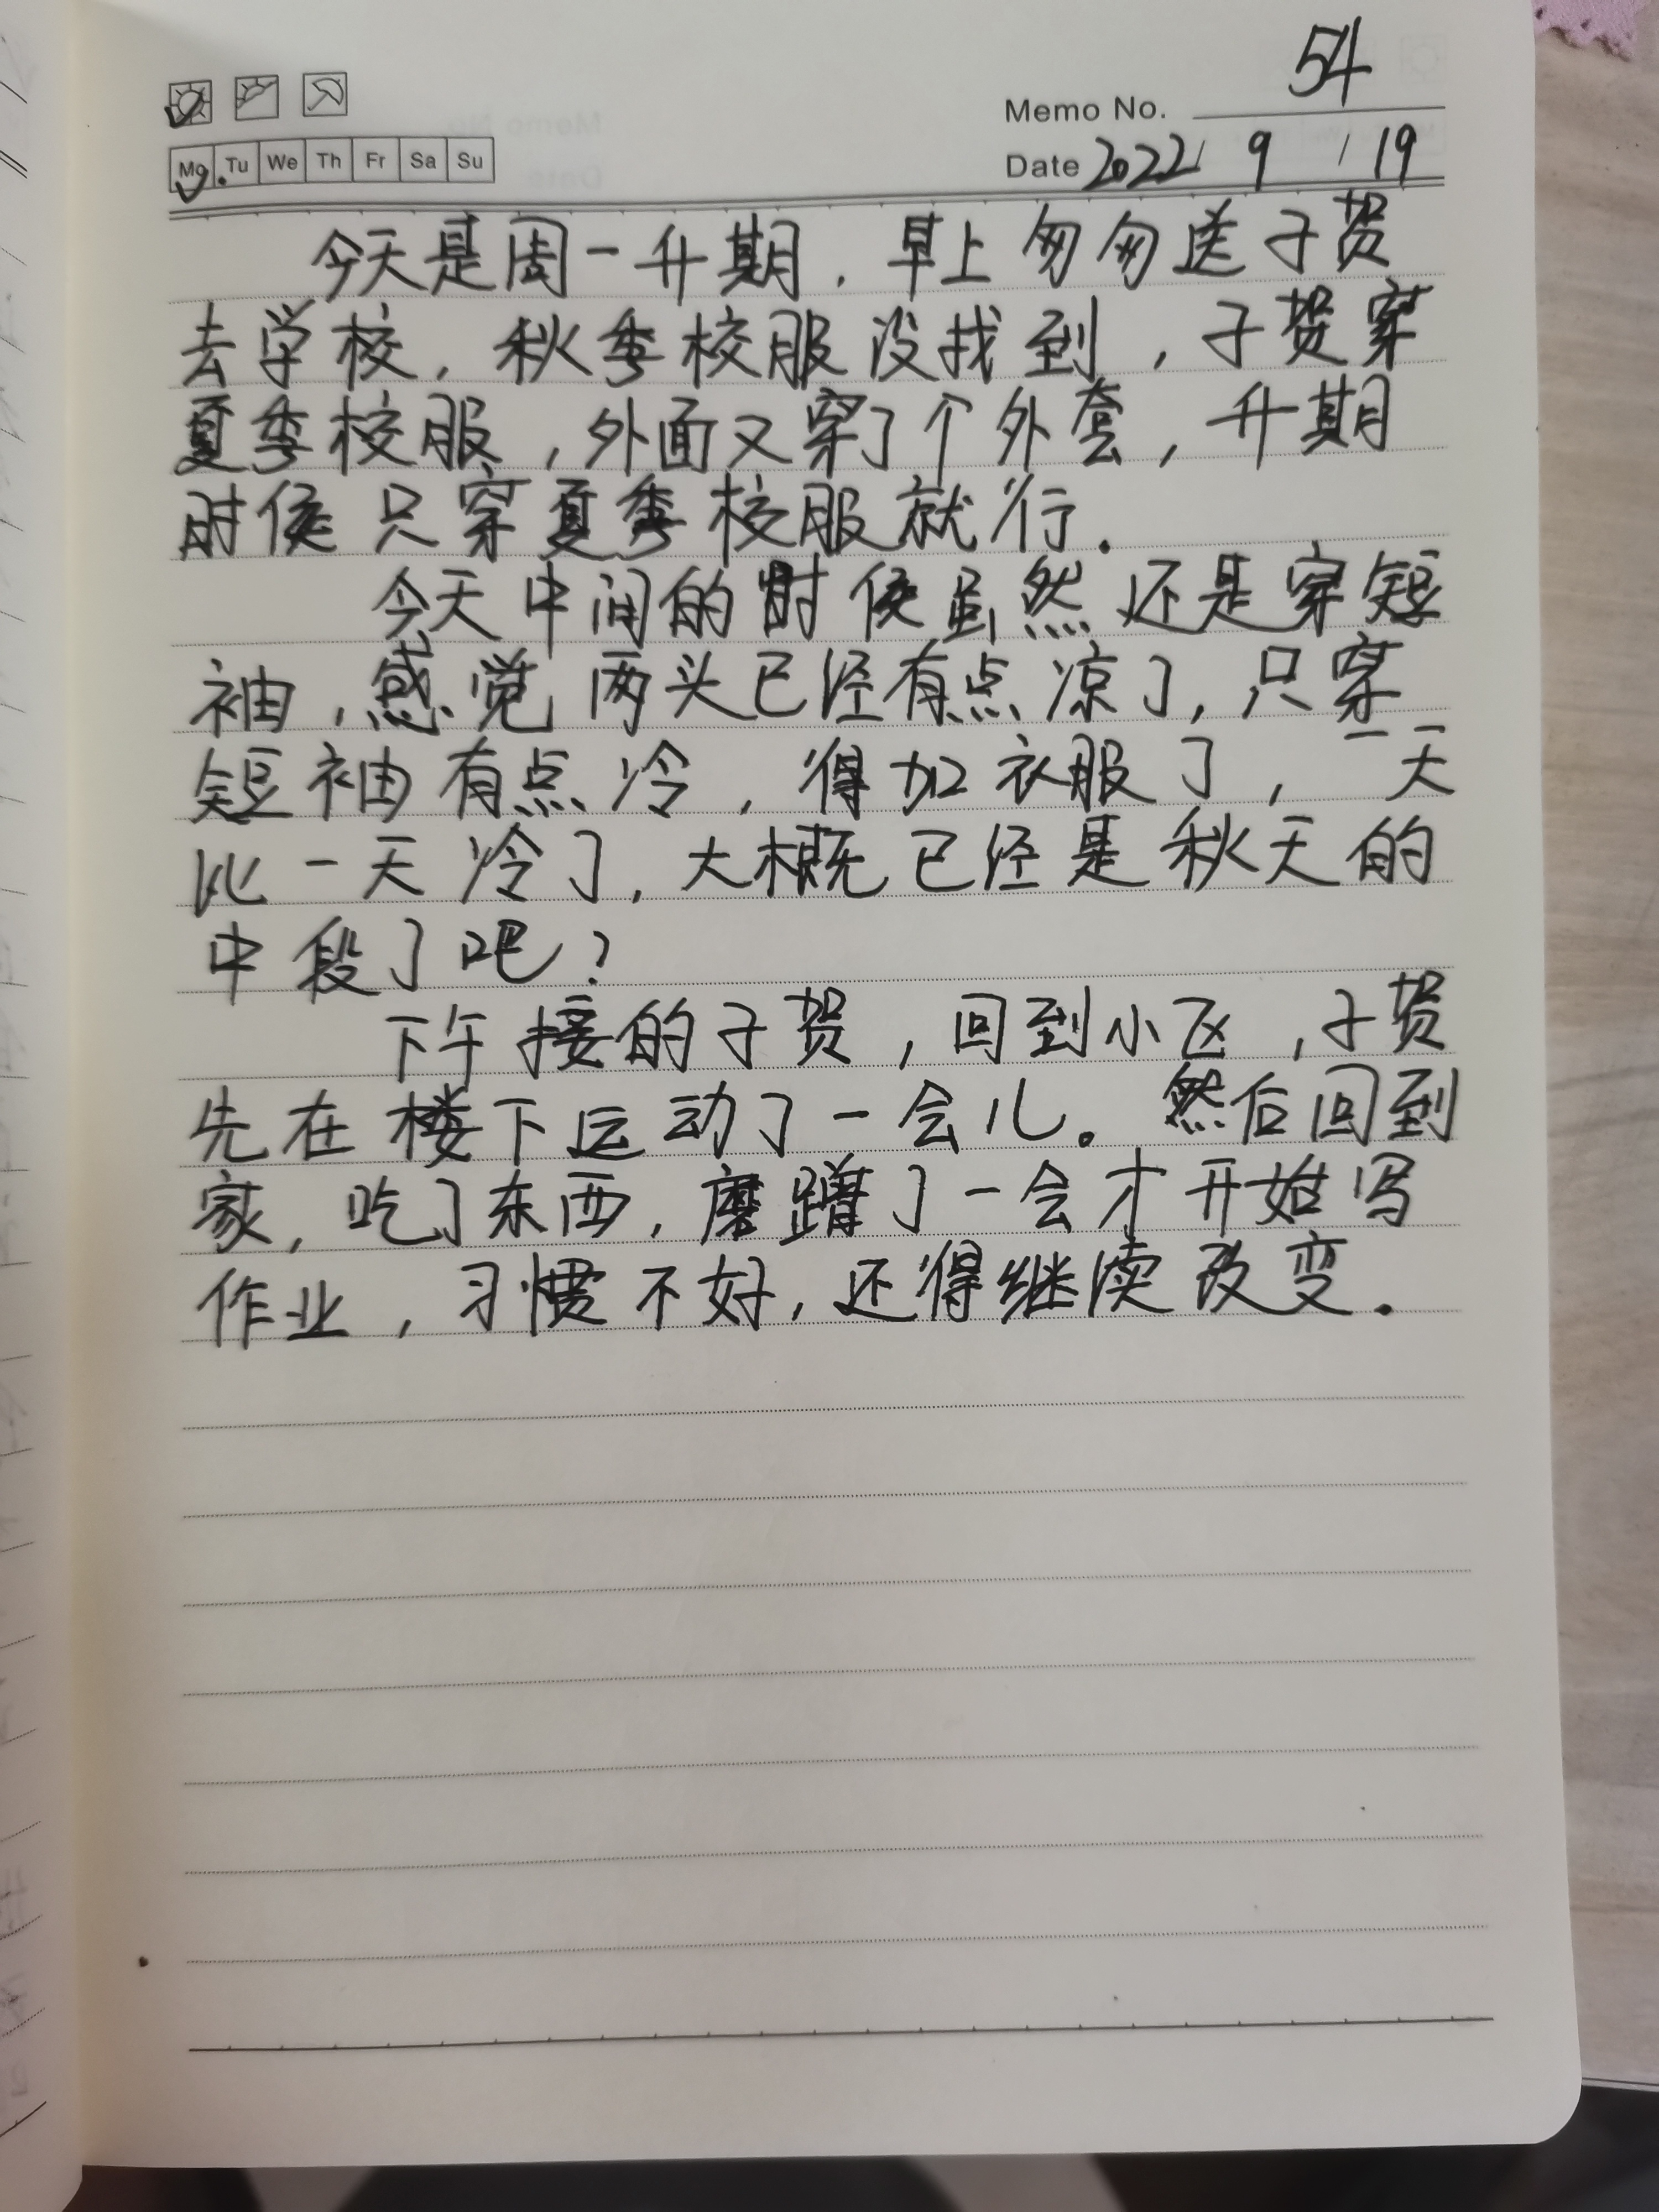 54
Memo No.
Mo Tu We Th Fr Sa Su
Date 2022 / 9 / 19
今天是周一升期，早上匆匆送子贺
去学校，秋季校服没找到，子贺穿
夏季校服，外面又穿了个外套，升期
时候只穿夏季校服就行．
今天中间的时候虽然还是穿短
袖，感觉两头已经有点凉了，只穿
短袖有点冷，得加衣服了，一天
比一天冷了，大概已经是秋天的
中段了吧？
下午接的子贺，回到小区，子贺
先在楼下运动了一会儿。然后回到
家，吃了东西，磨蹭了一会才开始写
作业，习惯不好，还得继续改变．